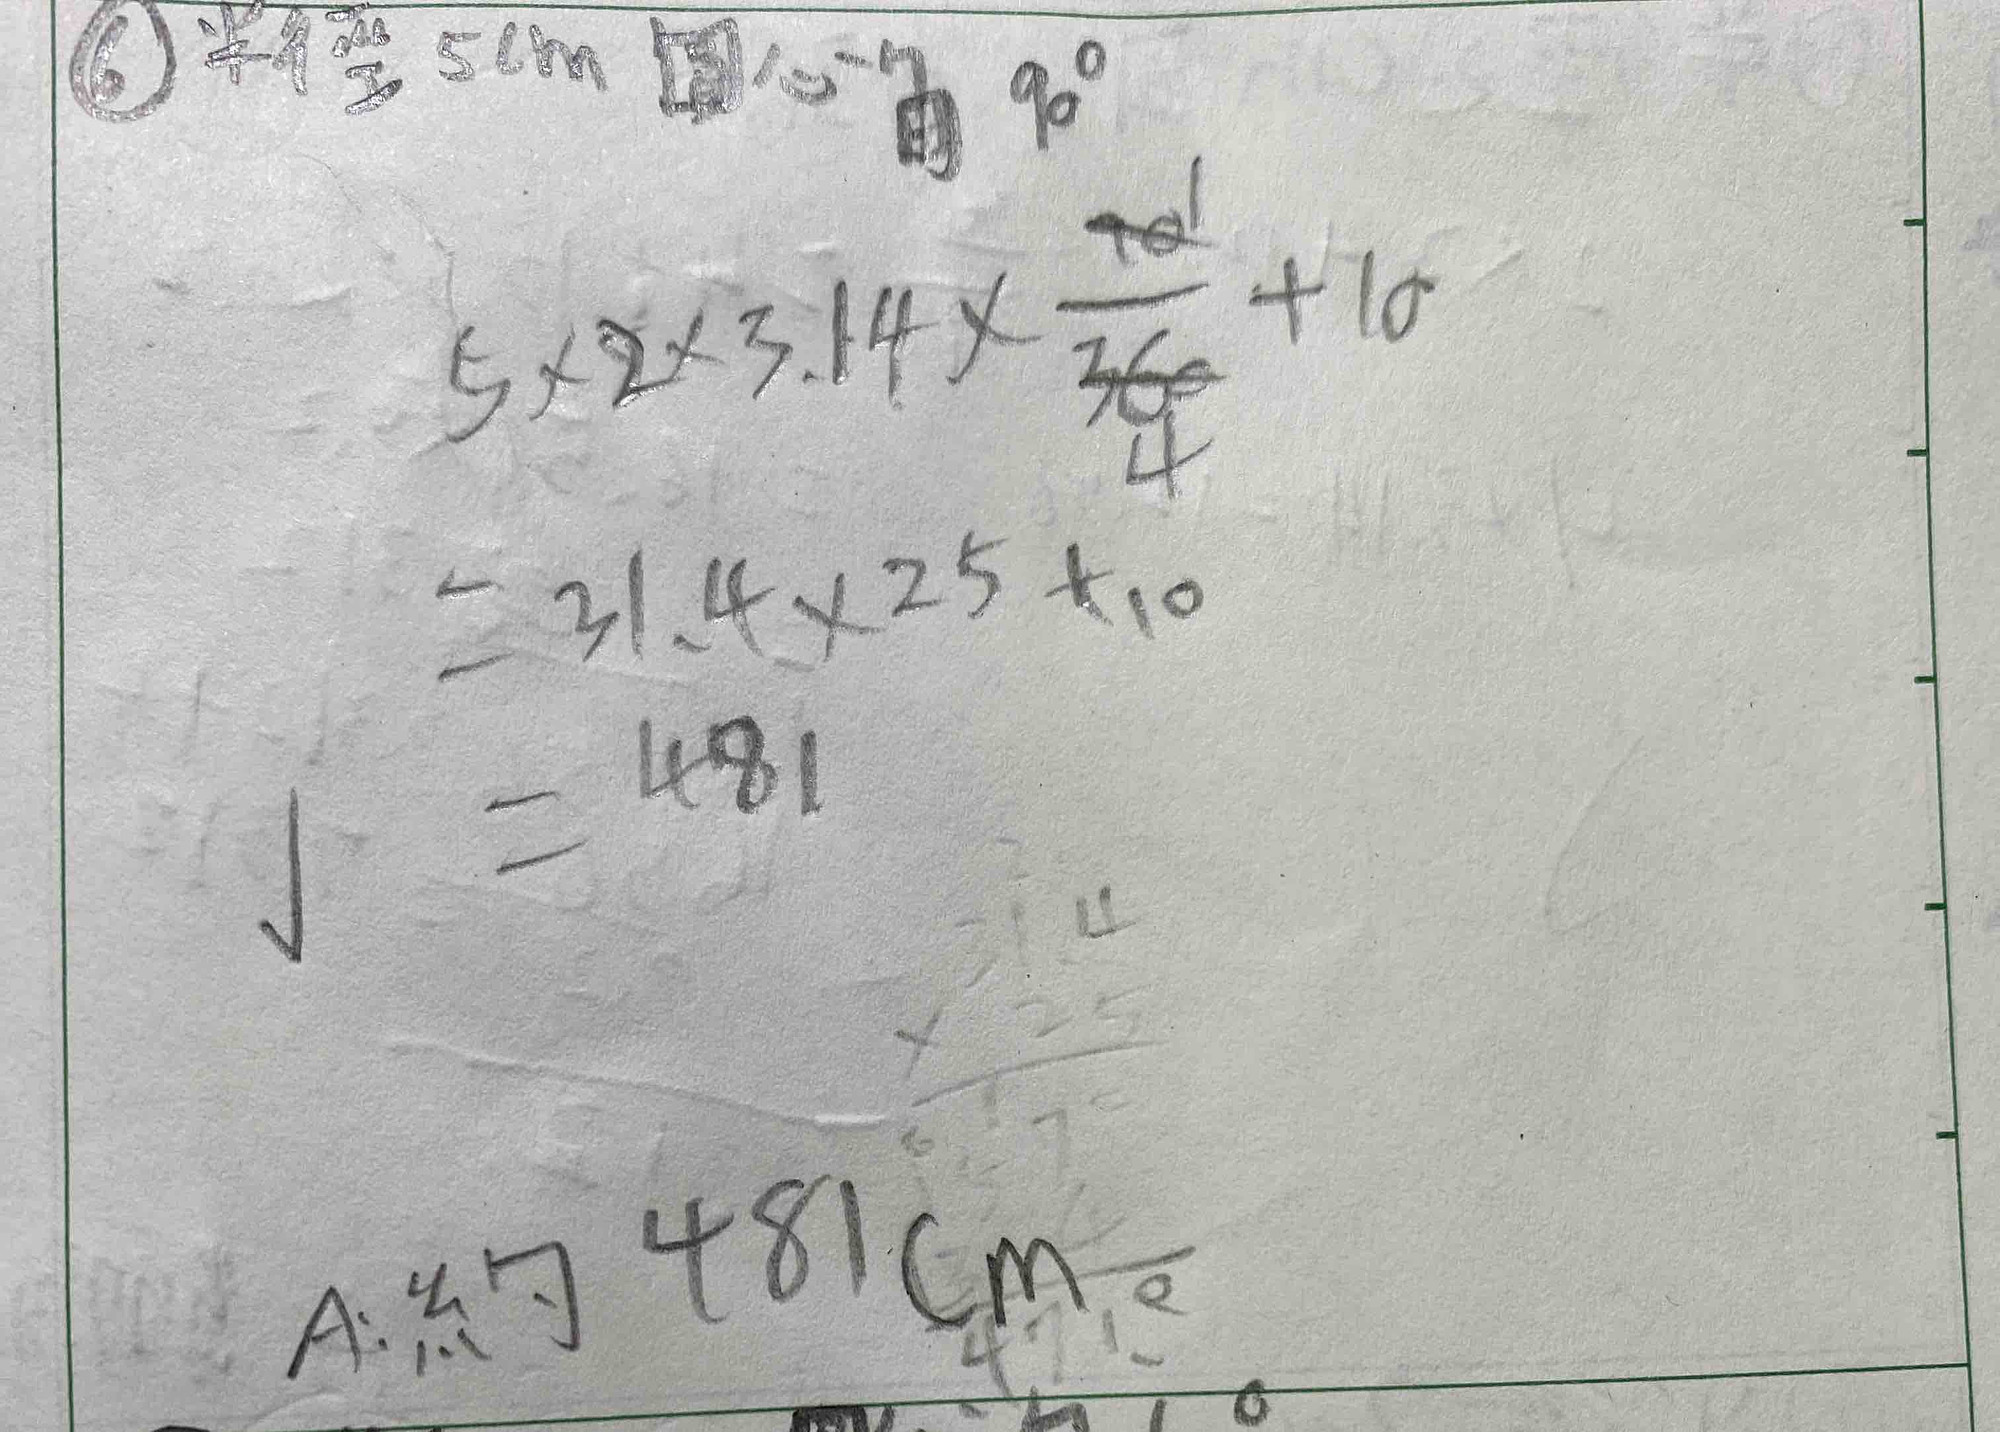 ⑥ 半徑 5cm 圓心角 90°
5×2×3.14×90/360 1/4 +10
=31.4×25+10
=481
31 4
× 25
A:約 481cm
471